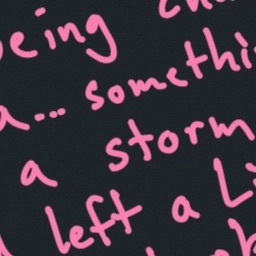 being
a... somethi
a storm
left a Li